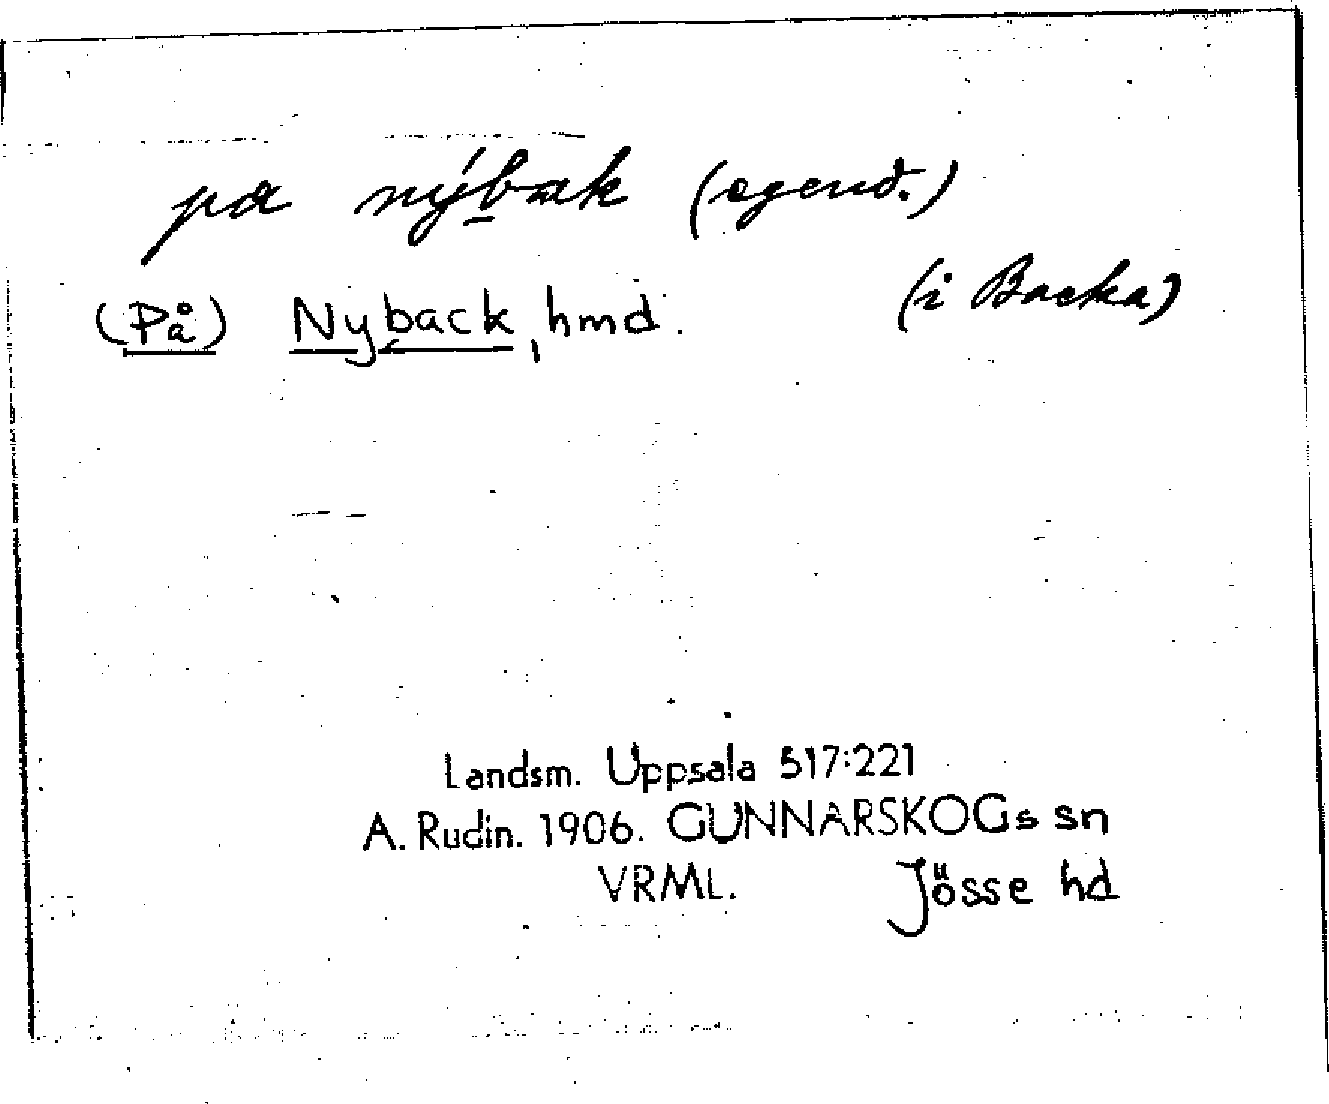 pa nýbak (egend.)
(i Backa)
(På) Nyback, hmd.
Landsm. Uppsala 517:221
A. Rudin. 1906. GUNNARSKOGs sn
VRML. Jösse hd